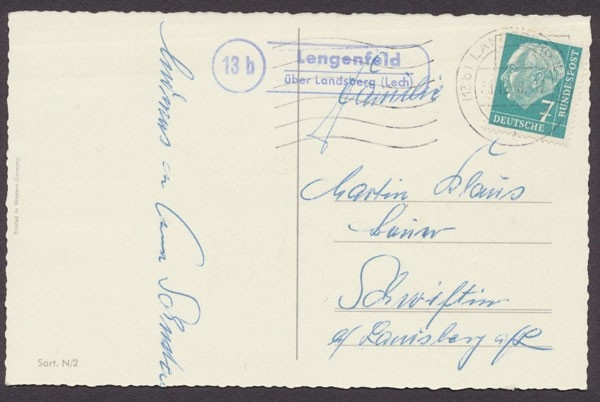 13 b
Lengenfeld
über Landsberg (Lech)
(13b) LAN
7
DEUTSCHE
BUNDESPOST
Familie
Martin Klaus
Bauer
Schwifting
a/ Landsberg a/L
Printed in Western Germany
Sort. N/2